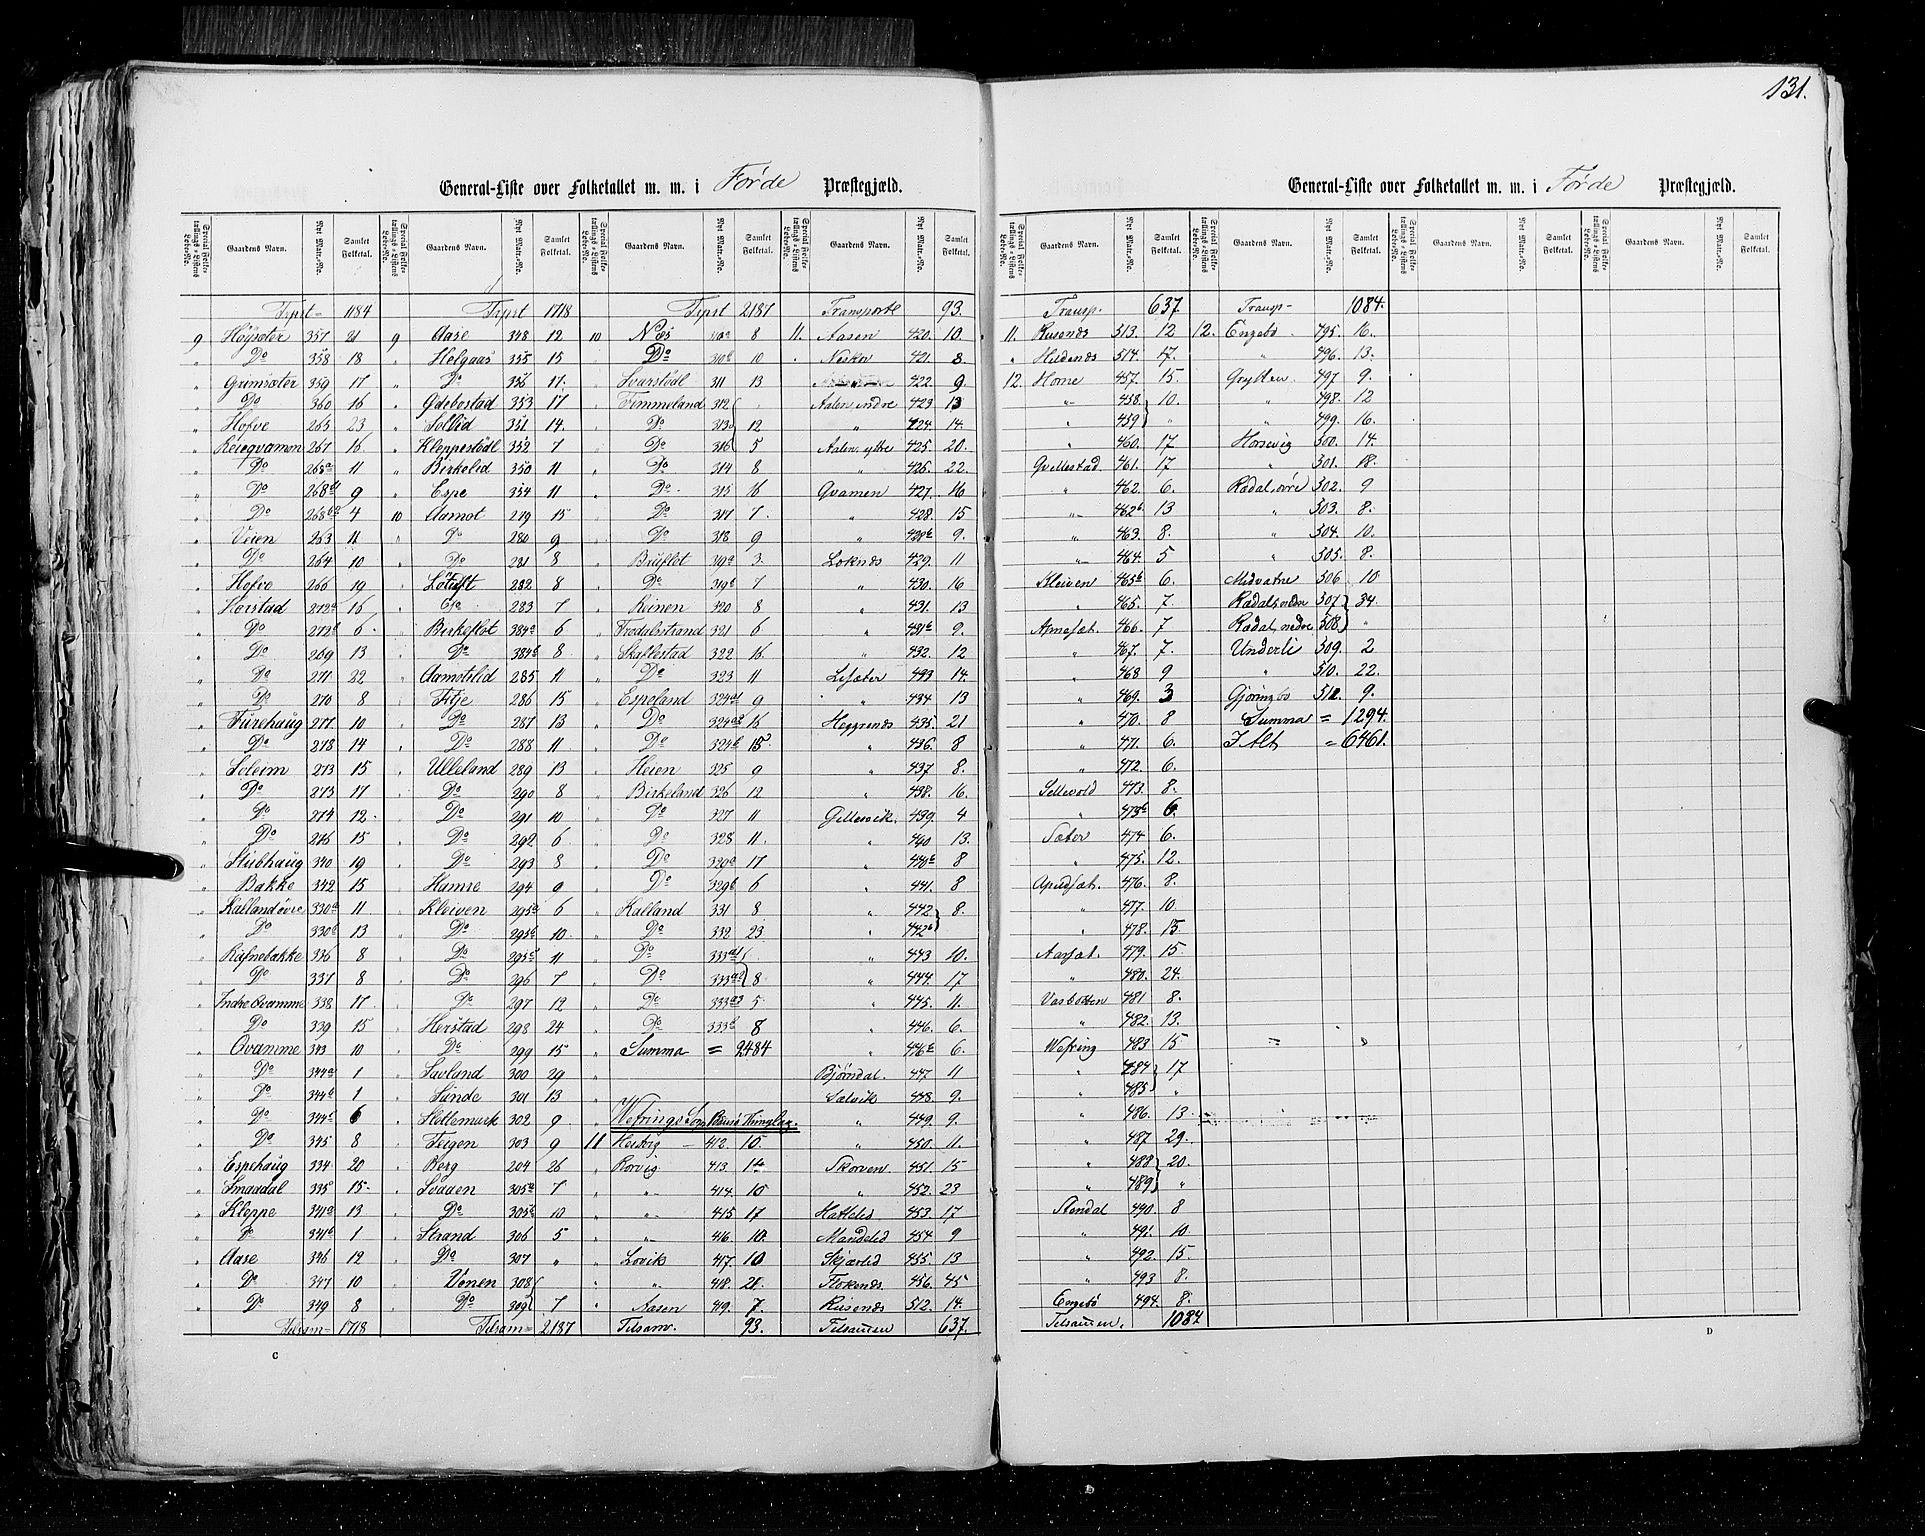 131.
General-Liste over Folketallet m. m. i Førde Præstegjæld.
General-Liste over Folketallet m. m. i Førde Præstegjæld.
Special Folketællings-Listens Løbe-No. Gaardens Navn. Nyt Matr.-No. Samlet Folketal.
Trpst 1184
9 Høysæter 357 21
" Do 358 18
" Grimsæter 359 17
" Do 360 16
" Hofve 265 23
" Reieqvamen 267 16
" Do 268a 11
" Do 268b1 9
" Do 268b2 4
" Veien 263 11
" Do 264 10
" Hofve 266 19
" Herstad 272a 16
" Do 272b 6
" Do 269 13
" Do 271 22
" Do 270 8
" Furehaug 277 10
" Do 278 14
" Soleim 273 15
" Do 273 17
" Do 274 12
" Do 276 15
" Stubhaug 340 19
" Bakke 342 15
" Kalland øvre 330a 11
" Do 330b 13
" Ravnebakke 336 8
" Do 337 8
" Indre Qvamme 338 17
" Do 339 15
" Qvamme 343 10
" Do 344a 1
" Do 344b 1
" Do 344c 6
" Do 345 8
" Espehaug 334 20
" Smaadal 335 15
" Kleppe 341a 13
" Do 341b 1
" Aase 346 12
" Do 347 10
" Do 349 8
Tilsam 1718
Trpst 1718
9 Aase 348 12
" Helgaas 355 15
" Do 356 17
" Gdebostad 353 17
" Solliid 351 14
" Kleppestødl 352 7
" Birkelid 350 11
" Espe 354 11
10 Aamot 279 15
" Do 280 9
" Do 281 8
" 282 8
" Do 283 7
" Birkeflot 384a 6
" Do 384b 8
" Aamotslid 285 11
" Fitje 286 15
" Do 287 13
" Do 288 11
" Ulleland 289 13
" Do 290 8
" Do 291 10
" Do 292 6
" Do 293 8
" Hamre 294 9
" Kleiven 295a 6
" Do 295b 10
" Do 295c 11
" Do 296 7
" Do 297 12
" Herstad 298 24
" Do 299 15
" Savland 300 29
" Sunde 301 13
" Slettemark 302 9
" Teigen 303 9
" Berg 204 26
" Loddeen 305a 7
" Do 305b 10
" Strand 306 5
" Do 307 "
" Vonen 308
" Do 309 7
Tilsam 2187
Trpst 2187
10 Næs 310a 8
" Do 310b 10
" Svarstødl 311 13
" Timmeland 312
" Do 313 12
" Do 316 5
" Do 314 8
" Do 315 16
" Do 317 7
" Do 318 9
" Bruflot 319a 3
" Do 319b 7
" Reinen 320 8
" Frodalsstrand 321 6
" Skaflestad 322 16
" Do 323 11
" Espeland 324a1 9
" Do 324a2 16
" Do 324b 15
" Heien 325 9
" Birkeland 326 12
" Do 327 11
" Do 328 11
" Do 329a 17
" Do 329b 6
" Kalland 331 8
" Do 332 23
" Do 333a1
" Do 333a2 8
" Do 333a3 5
" Do 333b 8
Summa = 2484
Wefrings Sogn Bueøe Thinglag.
11 Hestvig 412 10
Rorvig 413 14
" 414 10
" 415 17
" 416 10
Lovik 417 10
" 418 21
Aasen 419 7
Tilsam. 93
Transporte 93
11. Aasen 420 10
Neskor 421 8
" 422 9
Aalen, indre 423 13
" 424 14
Aalen, ytre 425 20
" 426 22
Qvamen 427 16
" 428 15
" 428b 9
Løkenes 429 11
" 430 16
" 431 13
" 431b 9
" 432 12
Lisæter 433 14
" 434 13
Heggenes 435 21
" 436 8
" 437 8
" 438 16
Gillesvik 439 4
" 440 13
" 440b 8
" 441 8
" 442 8
" 442b
" 443 10
" 444 17
" 445 11
" 446 6
" 446b 6
Bjørndal 447 11
Sælvik 448 9
" 449 9
" 450 11
Skorven 451 15
" 452 23
Hatteles 453 17
Mandelid 454 9
Skjærlid 455 13
Flokenes 456 45
Rusenes 512 14
Tilsammen 637
Transp. 637
11. Rusenes 513 12
" Hildenes 514 17
12. Horne 457 15
" 458 10
" 459 "
" 460 17
Gvellestad 461 17
" 462 6
" 462b 13
" 463 8
" 464 5
Kleiven 465b 6
" 465 7
Apnesæt. 466 7
" 467 7
" 468 9
" 469 3
" 470 8
" 471 6
" 472 6
Sellevold 473 8
" 473b 6
Sæter 474 6
" 475 12
Apaldsæt. 476 8
" 477 10
" 478 15
Aarsæt. 479 15
" 480 24
Vasbotten 481 8
" 482 13
Wefring 483 15
" 484 17
" 485 "
" 486 13
" 487 29
" 488 20
" 489 "
Stendal 490 8
" 491 10
" 492 15
" 493 8
Engebø 494 8
Tilsammen. 1084
Transp. 1084
12. Engebø 495 16
" 496 13
Grytten 497 9
" 498 12
" 499 16
Horsevig 500 14
" 501 18
Rødal, øvre 502 9
" 503 8
" 504 10
" 505 8
Midvatne 506 10
Rødal, nedre 507 34
Rødal, nedre 508 "
Underli 509 2
" 510 22
Gjøringbø 511 9
Summa = 1294
I Alt = 6461
C
D